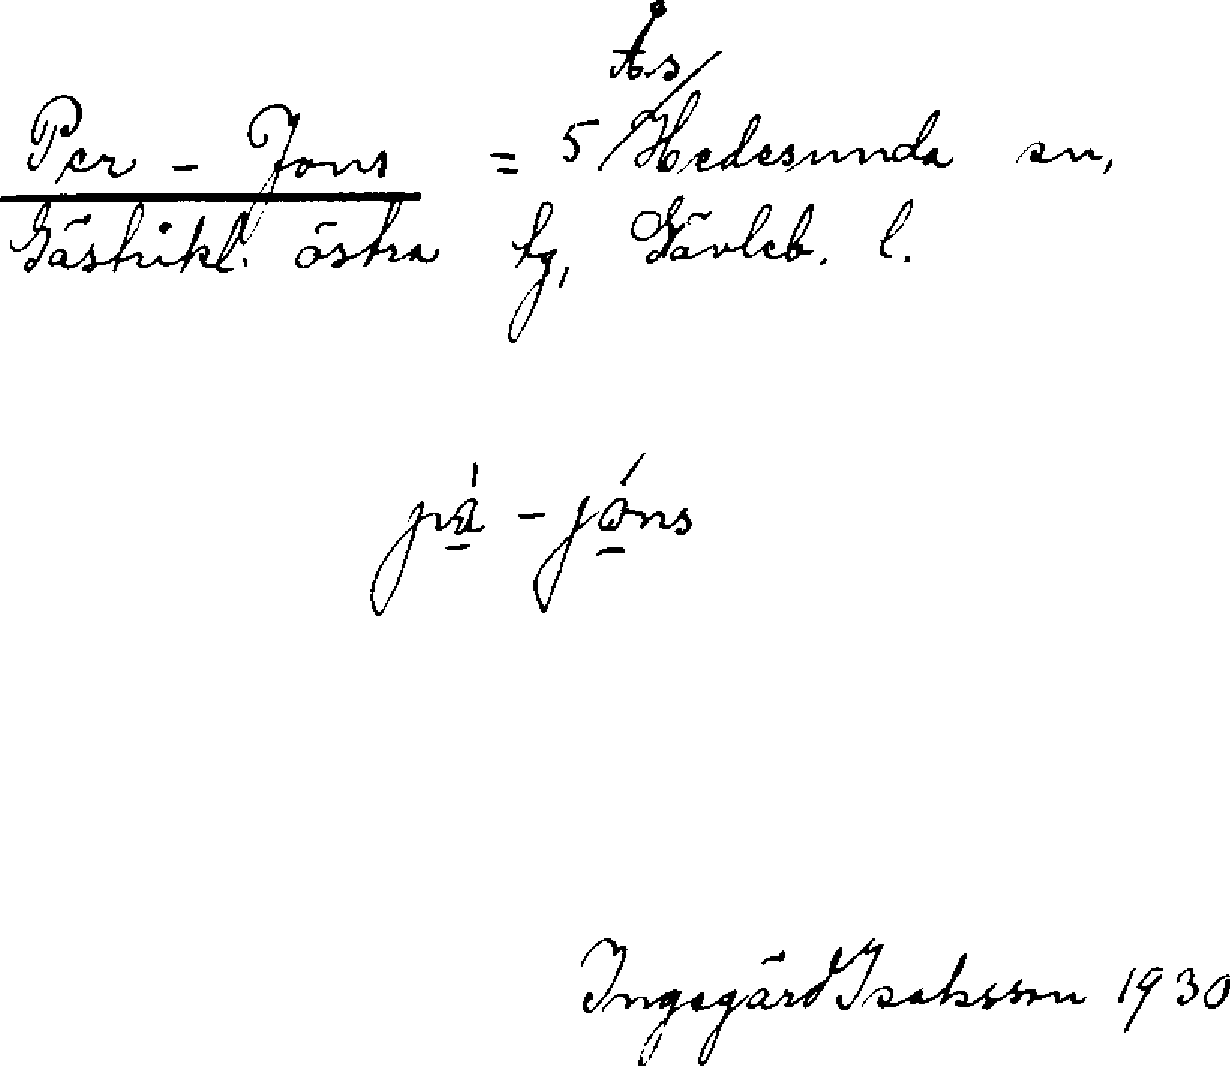 Ås
Per - Jons = 5 / Hedesunda sn,
Gästrikl. östra tg, Gävleb. l.
- jóns
Ingegärd Isaksson 1930